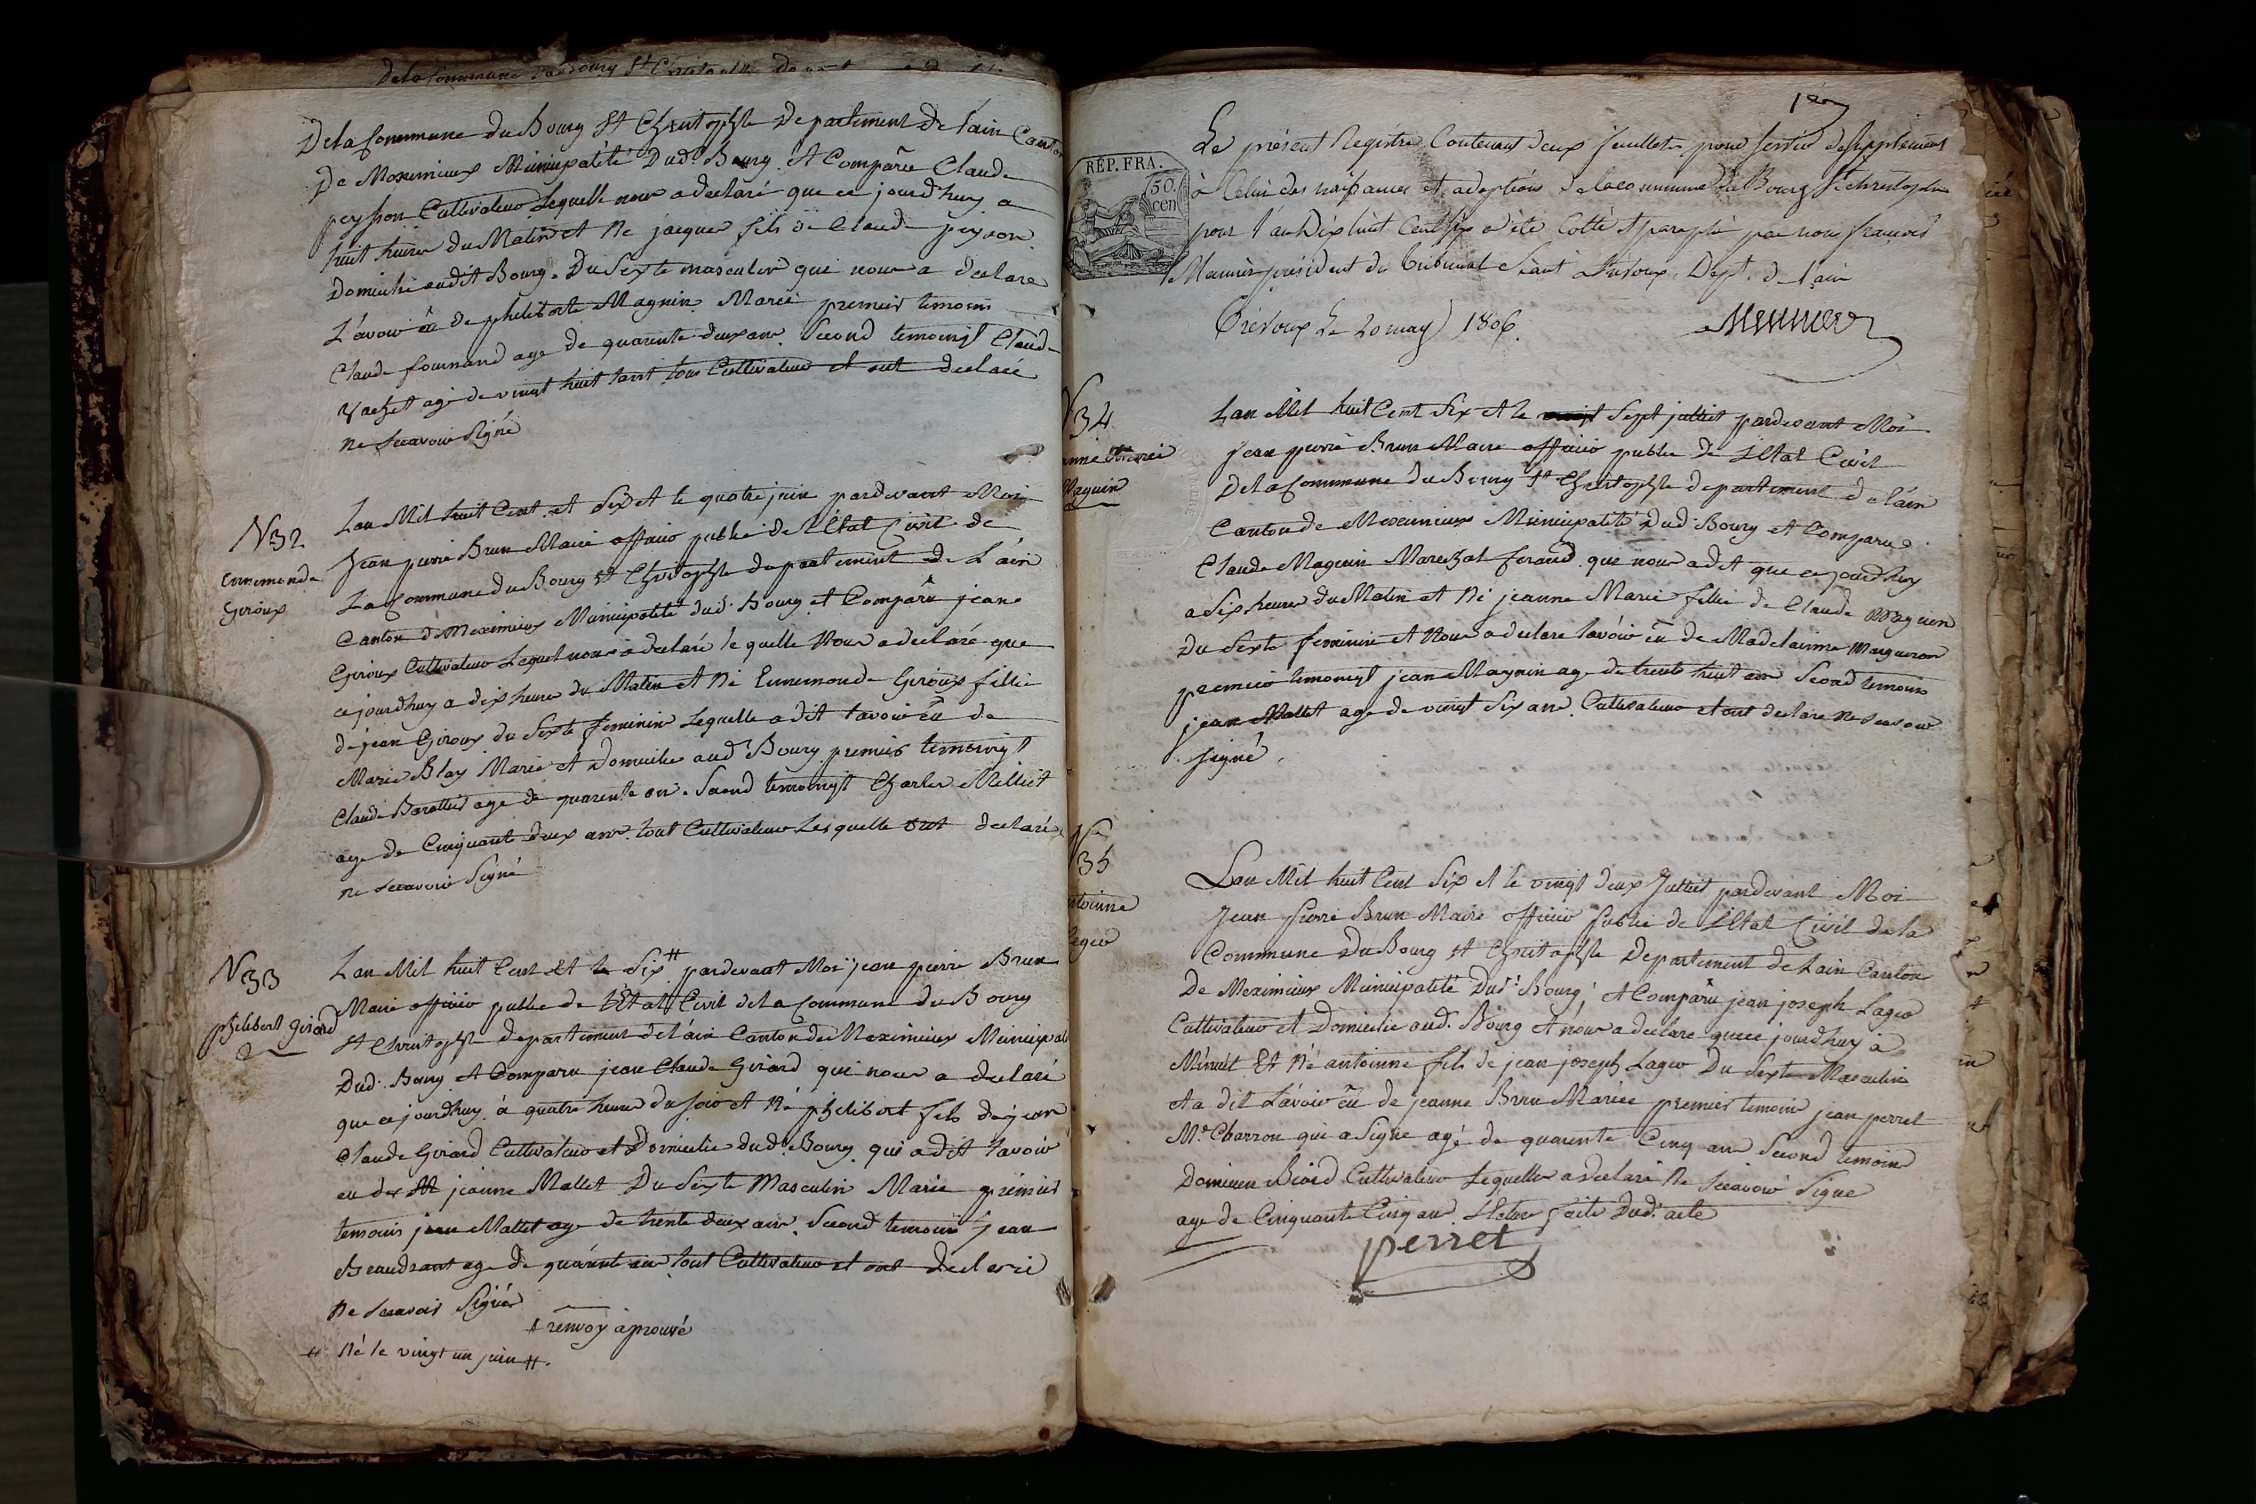 De la Commune du Bourg St Christophle Departement de l'ain Canton
De Meximieux Municipalité Dud. Bourg. Et Comparu Claude
peysson Cultivateur Lequelle nous a declaré que ce jourdhuy a
huit heure du Matin et Né jacque fils de Claude peysson
Domicilié audit Bourg. Du Sexte masculin qui nous a declare
L'avoir eû de pheliberte Magnin Marié premier temoins
Claude fournand age de quarente deux ans Second temoingt Claude
Vachet agé de vingt huit tout tous Cultivateur et ont declaré
ne scavoir Signé
N 32
Ennemonde
Giroux
Lan Mil huit Cent et Six et le quatre juin pardevant Moi
Jean pierre Brun Maire officier public de l'État Civil de
La Commune du Bourg St Christophle departement de L'ain
Canton de Meximieux Municipalité dud. Bourg et Comparû jean
Giroux Cultivateur Lequel nous a declaré lequelle Nous a declaré que
ce jourdhuy a dix heure du Matin et Né Ennemonde Giroux fillie
de jean Giroux du Sexte feminin Lequelle a dit lavoir eû de
Marie Blay Marie et Domicilie aud Bourg premier temoingt
Claude Barollier age de quarente an. Second temoingt Charles Milliet
age de Cinquante deux ans. tout Cultivateur Lesquelle ont declaré
ne scavoir Signé
N 33
phelibert Girard
Lan Mil huit Cent Et le Six # pardevant Moi jean pierre Brun
Maire officier public de l'État Civil de la Commune du Bourg
St Christophle departement de l'ain Canton de Meximieux Municipal
Dud. Bourg et Comparu jean Claude Girard qui nous a declaré
que ce jourdhuy à quatre heure du soir et Né phelibert fils de jean
Claude Girard Cultivateur et Domicilie dud. Bourg. qui a dit lavoir
eu de M jeanne Mallet Du Sexte Masculin Marié premier
temoins jean Mallet age de trente deux ans Second temoin jean
Beaudrant age de quarente an tout Cultivateur et ont declaré
Ne scavoir Signér
# renvoy aprouvé
# Né le vingt un juin #.
1er
REP. FRA.
50
cen
Le présent Registre Contenant deux feuillets pour servir de supplement
à Celui des naissances et adoptions de la commune du Bourg St christophe
pour l'an Dix huit Cent Six a été Cotté et paraphé par nous françois
Meunier president du Tribunal Seant a Trevoux, Dept. de l'ain
Trévoux Le 20 may 1806.
Meunier
N 34
Magnin
Lan Mil huit Cent Six et le Sept julliet pardevant Moi
jean pierre Brun Maire officier public de L'Etat Civil
De la Commune du Bourg St Christophle departement de l'ain
Canton de Meximieux Municipalité Dud. Bourg et Comparu
Claude Magnin Marechal ferand que nous a dit que ce jourdhuy
a Six heure du Matin et Né jeanne Marie fillie de Claude Magnien
Du Sexte feminin et Nous a declare lavoir eû de Madelainne Margueron
premier temoingt jean Magnin age de trente huit ans Second temoin
jean Mallet age de vingt Six ans. Cultivateur et ont declare Ne scavoir
signé.
N
35
Lan Mil huit Cent Six et le vingt deux Julliet pardevant Moi
Jean pierre Brun Maire officier Public de L'Etat Civil de la
Commune du Bourg St Christophle Departement de Lain Canton
De Meximieux Municipalité Dud. Bourg; et Comparû jean joseph Lager
Cultivateur et Domicilie aud. Bourg et nous a declare que ce jourdhuy a
Minuit Et Né antoinne fils de jean joseph Lager Du Sexte Masculin
et a dit L'avoir eû de jeanne Brun Mariée premier temoin jean perret
Me. Charron qui a Signe agé de quarente Cinq ans Second temoin
Dominen Biord Cultivateur Lequelle a declaré Ne Scavoir Signe
age de Cinquante Cinq an. Faite Dud. acte
perret